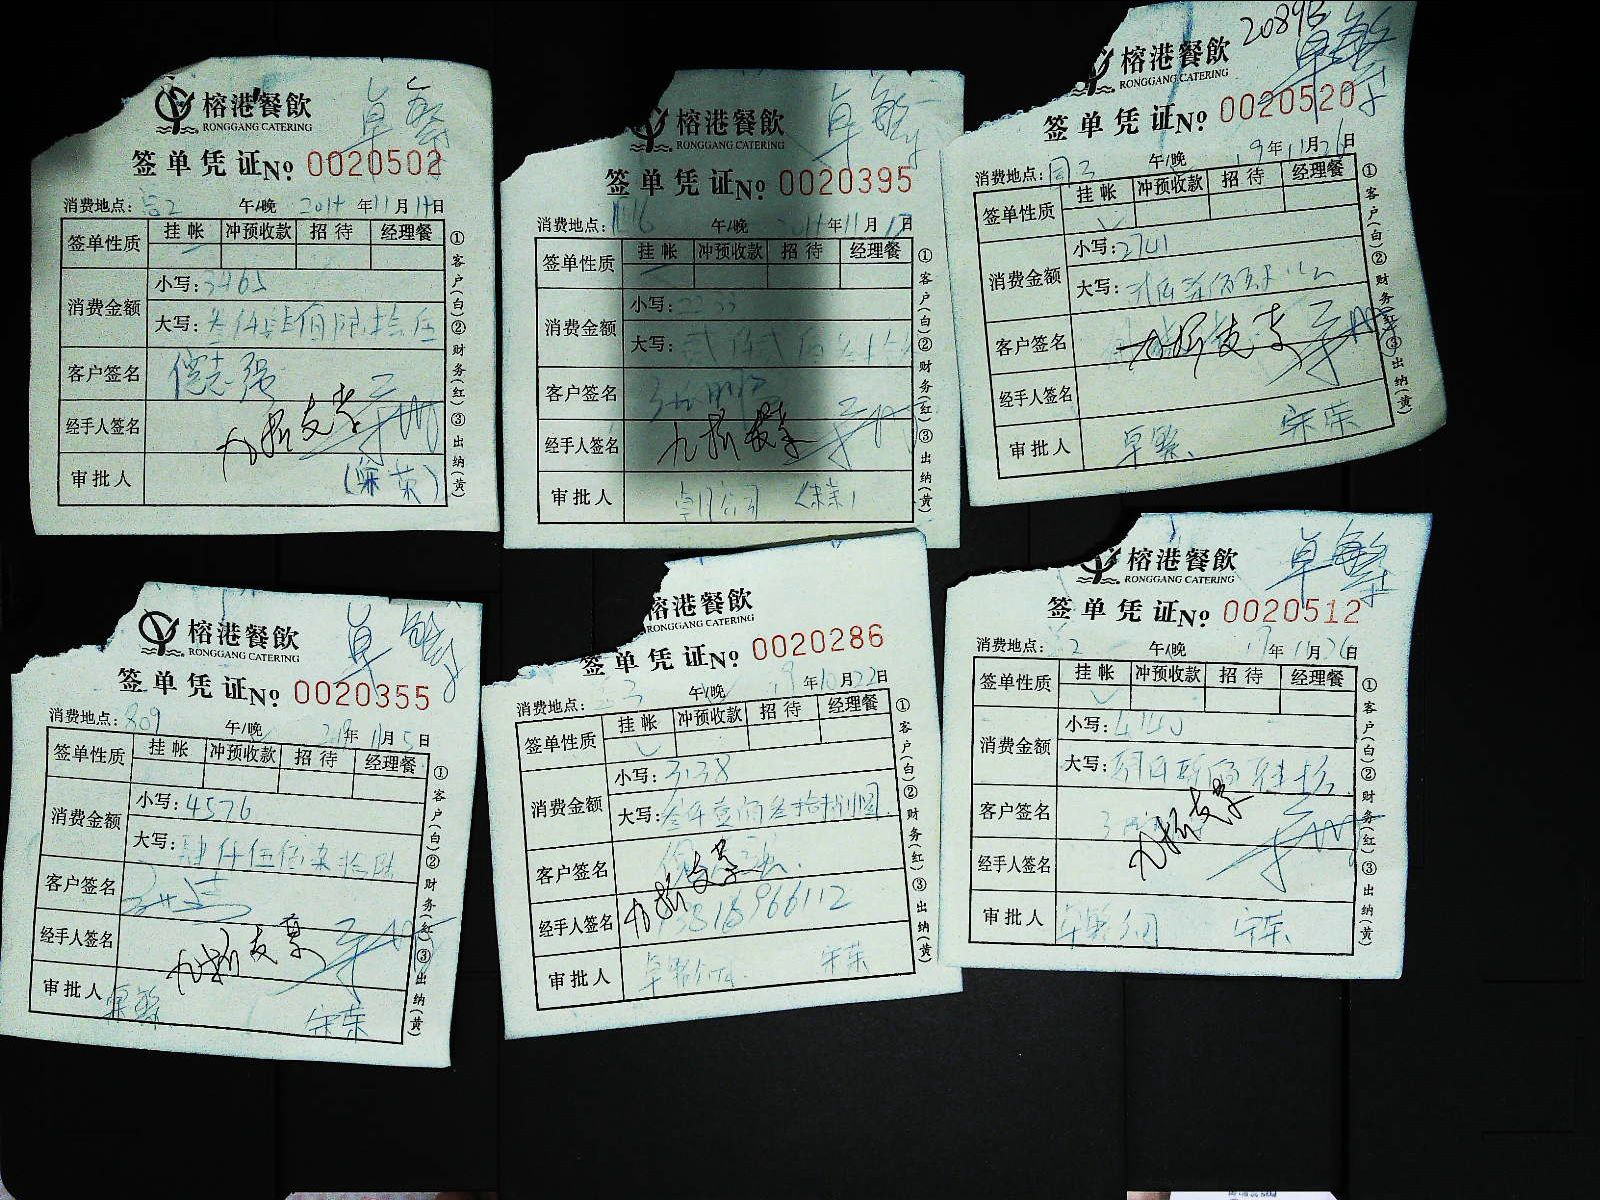 榕港餐飲
RONGGANG CATERING
签单凭证No 0020502
消费地点: 午/晚 年11月14日
签单性质 挂帐 冲预收款 招待 经理餐
消费金额 小写:3465
大写:叁仟肆佰陆拾伍
客户签名
经手人签名 九折支票
审批人 (宋荣)
①客户(白)②财务(红)③出纳(黄)
榕港餐飲
RONGGANG CATERING
签单凭证No 0020395
消费地点: 午/晚 年11月 日
签单性质 挂帐 冲预收款 招待 经理餐
消费金额 小写:2233
大写:贰仟贰佰叁拾
客户签名
经手人签名 九折支票
审批人 (宋荣)
①客户(白)②财务(红)③出纳(黄)
2089
卓繁
榕港餐飲
RONGGANG CATERING
签单凭证No 0020520
消费地点: 午/晚 19年11月26日
签单性质 挂帐 冲预收款 招待 经理餐
消费金额 小写:2741
大写:
客户签名 九折支票
经手人签名
审批人 卓繁 宋荣
①客户(白)②财务(红)③出纳(黄)
卓繁
榕港餐飲
RONGGANG CATERING
签单凭证No 0020355
消费地点:809 午/晚 年11月5日
签单性质 挂帐 冲预收款 招待 经理餐
消费金额 小写:4576
大写:肆仟伍佰柒拾陆
客户签名
经手人签名 九折支票
审批人 卓繁 宋荣
①客户(白)②财务(红)③出纳(黄)
榕港餐飲
RONGGANG CATERING
签单凭证No 0020286
消费地点: 午/晚 19年10月22日
签单性质 挂帐 冲预收款 招待 经理餐
消费金额 小写:3138
大写:叁仟壹佰叁拾捌圆
客户签名
经手人签名 九折支票
审批人 卓繁公司 宋荣
①客户(白)②财务(红)③出纳(黄)
卓繁
榕港餐飲
RONGGANG CATERING
签单凭证No 0020512
消费地点: 午/晚 19年11月26日
签单性质 挂帐 冲预收款 招待 经理餐
消费金额 小写:4740
大写:
客户签名 九折支票
经手人签名
审批人 卓繁公司 宋荣
①客户(白)②财务(红)③出纳(黄)